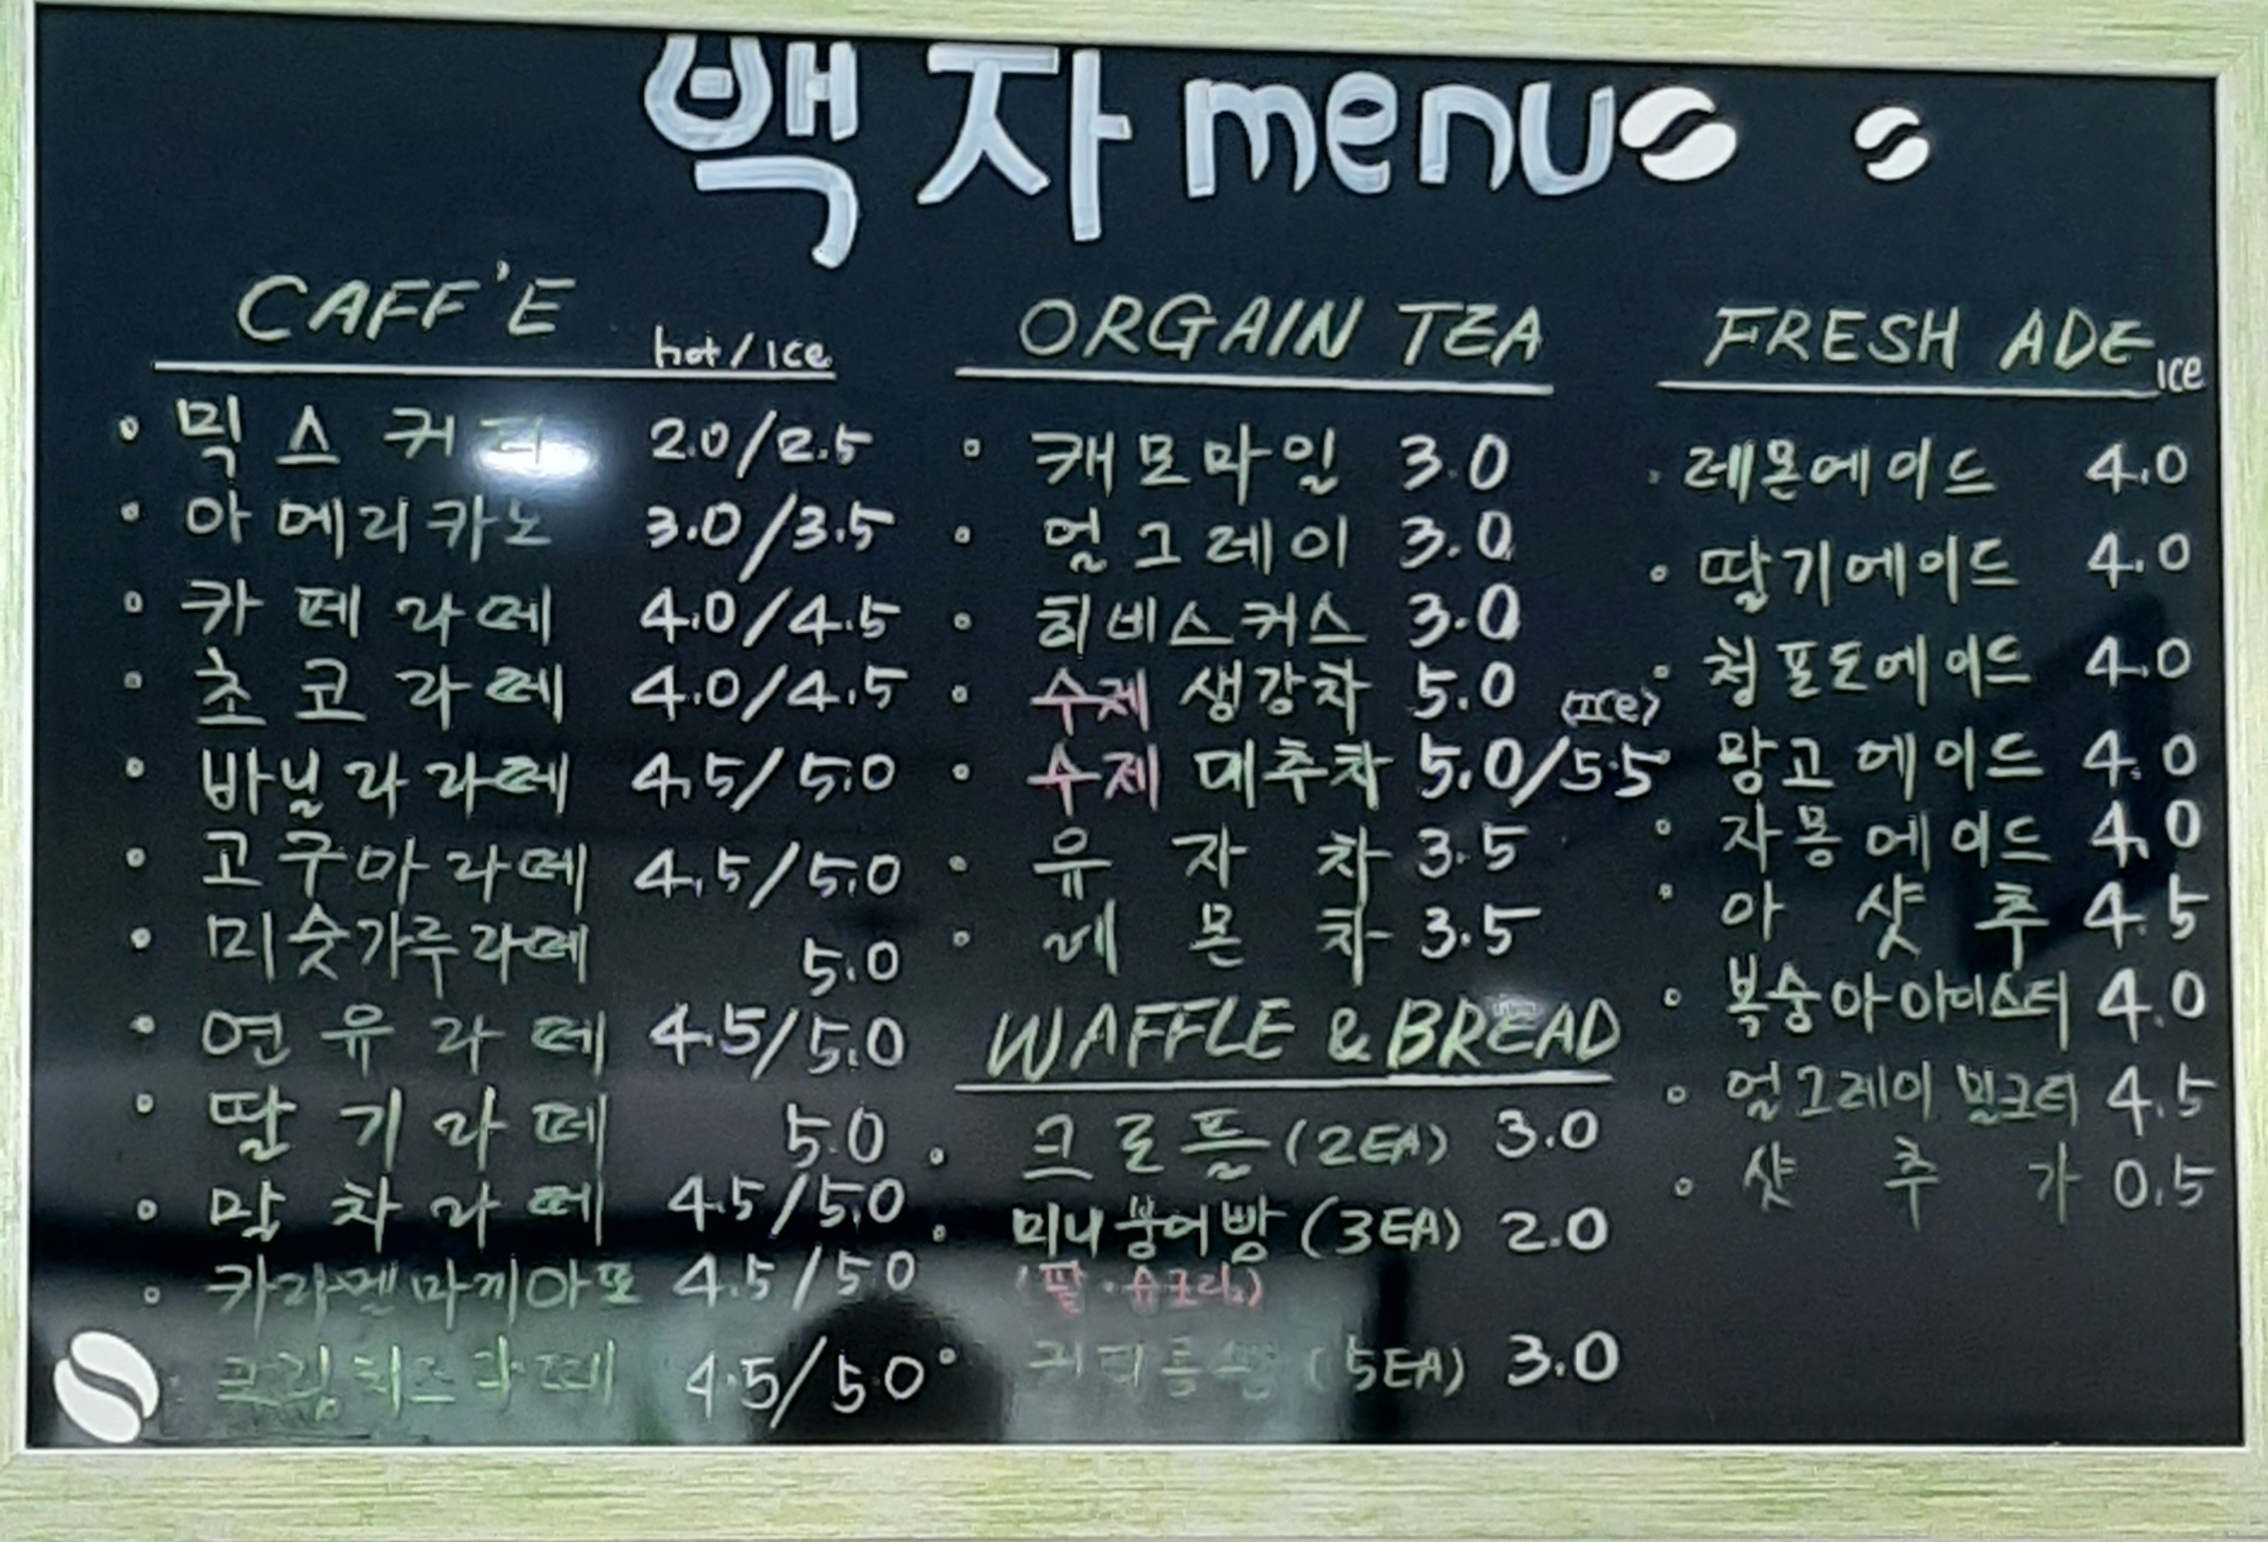 백자 menu
CAFF'E hot/ice
믹스커피 2.0/2.5
아메리카노 3.0/3.5
카페라떼 4.0/4.5
초코라떼 4.0/4.5
바닐라라떼 4.5/5.0
고구마라떼 4.5/5.0
미숫가루라떼 5.0
연유라떼 4.5/5.0
딸기라떼 5.0
말차라떼 4.5/5.0
카라멜마끼아또 4.5/5.0
크림치즈라떼 4.5/5.0
ORGAIN TEA
캐모마일 3.0
얼그레이 3.0
히비스커스 3.0
수제 생강차 5.0
수제 대추차 5.0/5.5 (ICE)
유자차 3.5
레몬차 3.5
WAFFLE & BREAD
크로플 (2EA) 3.0
미니붕어빵 (3EA) 2.0
(팥·슈크림)
(5EA) 3.0
FRESH ADE ice
레몬에이드 4.0
딸기에이드 4.0
청포도에이드 4.0
망고에이드 4.0
자몽에이드 4.0
아샷추 4.5
복숭아아이스티 4.0
얼그레이밀크티 4.5
샷추가 0.5